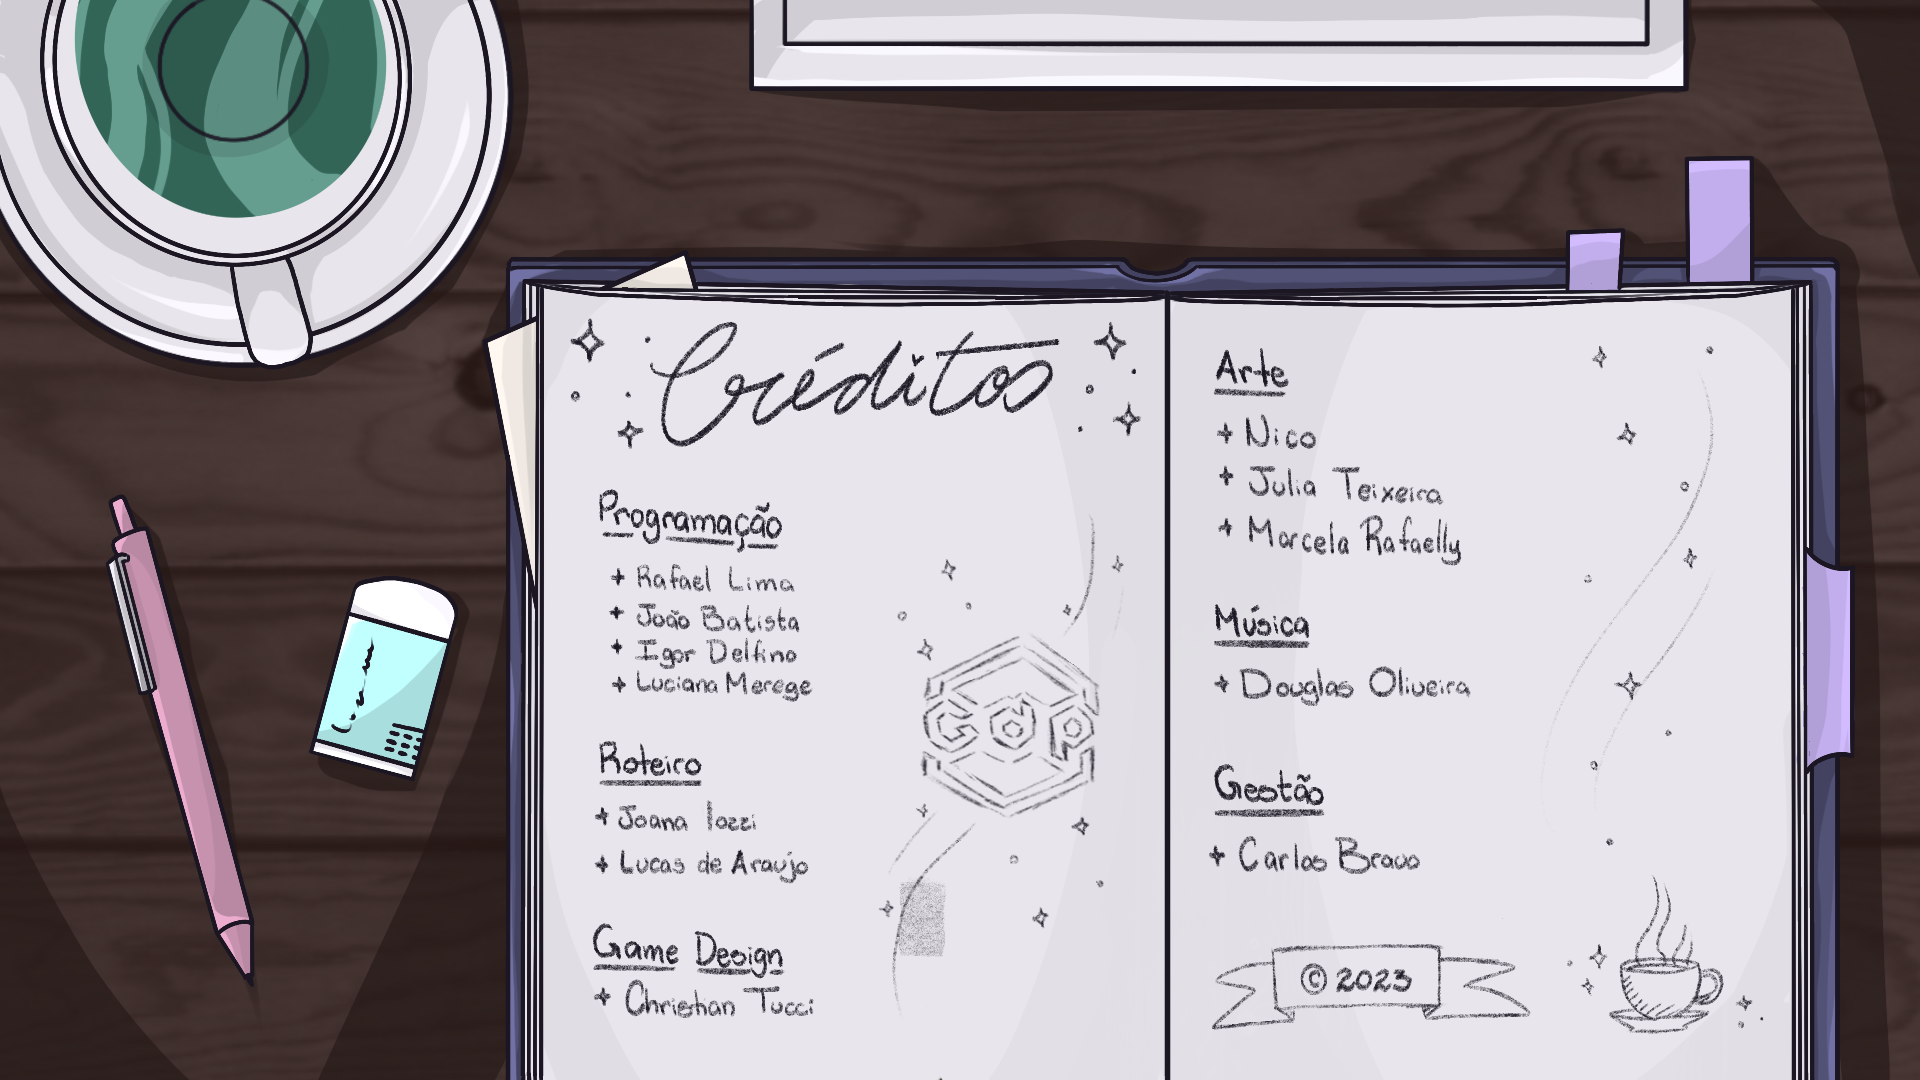 Créditos
Programação
+ Rafael Lima
+ João Batista
+ Igor Delfino
+ Luciana Merege
Roteiro
+ Joana Iozzi
+ Lucas de Araujo
Game Design
+ Christian Tucci
GdP
Arte
+ Nico
+ Julia Teixeira
+ Marcela Rafaelly
Música
+ Douglas Oliveira
Gestão
+ Carlos Bravo
© 2023